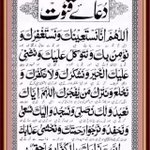 دعائے قنوت
اللهم انا نستعينك ونستغفرك و
نؤمن بك ونتوكل عليك ونثني
عليك الخير ونشكرك ولا نكفرك و
نخلع ونترك من يفجرك اللهم اياك
نعبد ولك نصلي ونسجد واليك نسعى
ونحفد ونرجوا رحمتك ونخشى عذابك
ان عذابك بالكفار ملحق